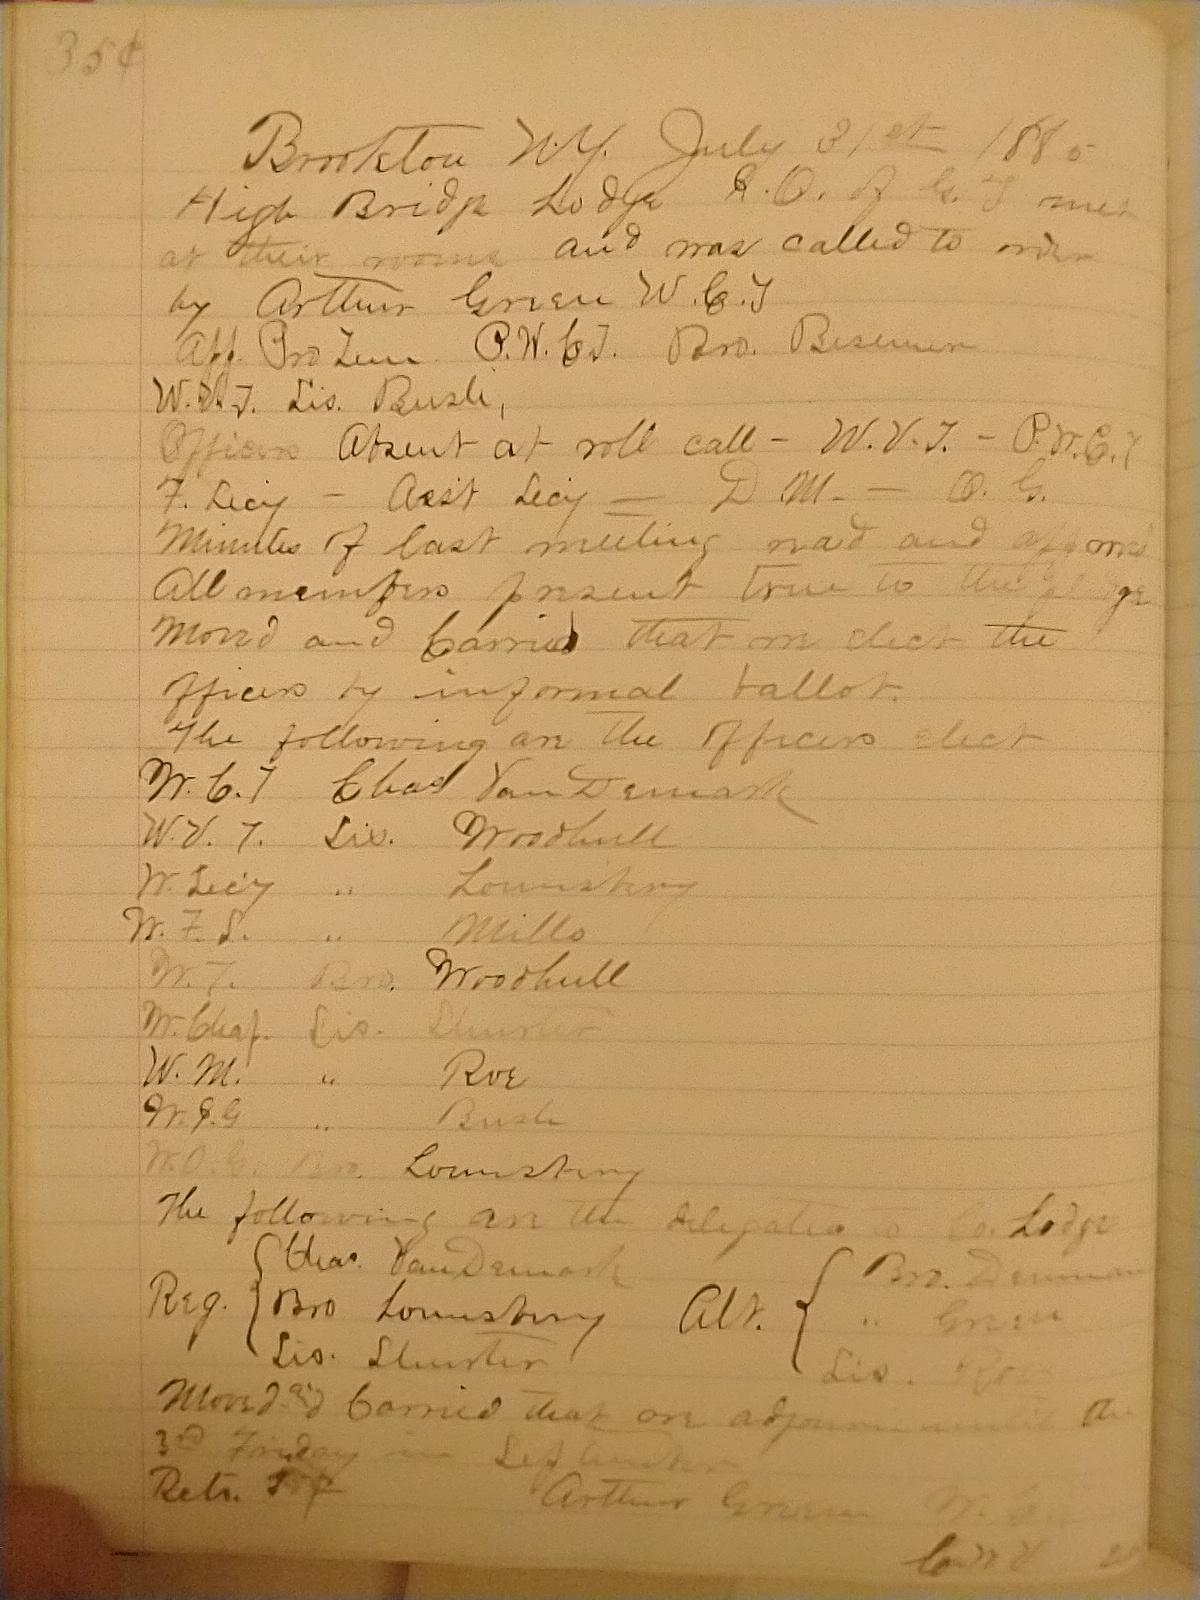 35¢
Brookton N.Y. July 31st 1885
High Bridge Lodge I.O. of G.T met
at their rooms and was called to order
by Arthur Green W.C.T
App. Pro Tem P.W.C.T. Bro. Besemer
W.V.T. Sis. Bush,
Officers Absent at roll call - W.V.T. - P.W.C.T
F. Secy - Asst Secy — D.M. — O.G.
Minutes of last meeting read and approved
All members present true to the pledge
Moved and Carried that we elect the
officers by informal ballot.
The following are the officers elect
W.C.T Chas VanDemark
W.V.T. Sis. Woodhull
W. Secy " Lounsbery
W.F.S. " Mills
W.T. Bro. Woodhull
W. Chap. Sis. Shurter
W.M. " Roe
W.I.G " Bush
W.O.G. Bro. Lounsbery
The following are the delegates to Co. Lodge
Chas. VanDemark Bro. Denman
Reg. Bro Lounsbery Alt. " Green
Sis. Shurter Sis. Roe
Moved and Carried that we adjourn until the
3rd Friday in September
Rets. Arthur Green W.C.T